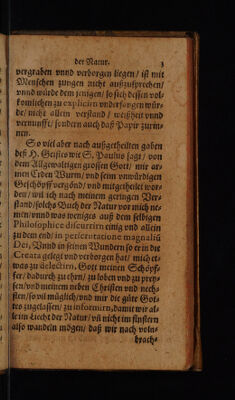 der Natur. 3
vergraben vnnd verborgen liegen / ist mit
Menschen zungen nicht außzusprechen /
vnnd würde dem jenigen / so sich dessen vol-
komlichen zu explicirn vnderfangen wür-
de / nicht allein verstand / weißheit vnnd
vernunfft / sondern auch daß Papir zurin-
nen.
So viel aber nach außgetheilten gaben
deß H. Geistes wie S. Paulus sagt / von
dem Allgewaltigen grossen Gott / mir ar-
men Erden Wurm / vnd seim vnwürdigen
Geschöpff vergönd / vnd mitgetheilet wor-
den / wil ich nach meinem geringen Ver-
stand / solchs Buch der Natur vor mich ne-
men / vnnd was weniges auß dem selbigen
Philosophice discurtirn einig vnd allein
zu dem end / in perscrutatione magnaliũ
Dei, Vnnd in seinen Wundern so er in die
Creata gelegt vnd verborgen hat / mich et-
was zu delectirn, Gott meinen Schöpf-
fer / dadurch zu ehrn / zu loben vnd zu prey-
sen / vnd meinem neben Christen vnd nech-
sten / so vil müglich / vnd mir die güte Got-
tes zugelassen / zu informirn, damit wir al-
le im Liecht der Natur / vñ nicht im finstern
also wandeln mögen / daß wir nach voln-
brach-